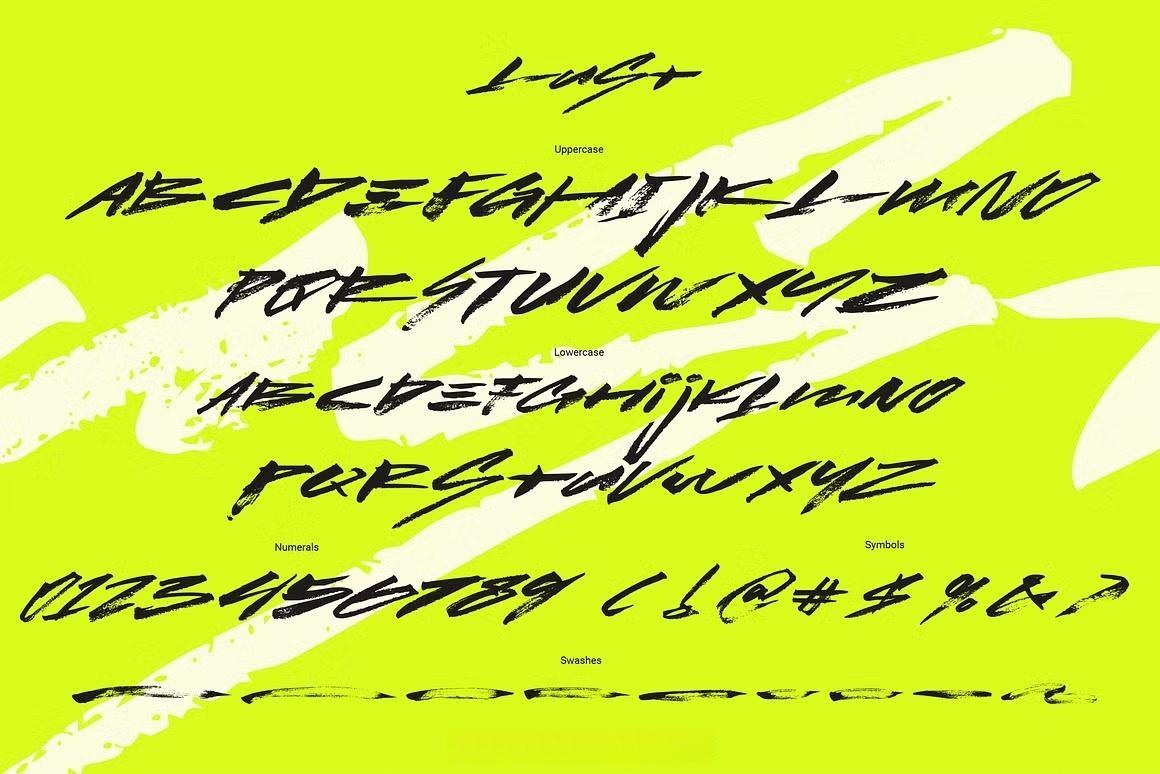 Lust
Uppercase
ABCDEFGHIJKLMNO
PQRSTUVWXYZ
Lowercase
ABCDEFGHijKLmNO
PQRStuVwXYZ
Numerals
Symbols
0123456789 (!@#$%&)
Swashes